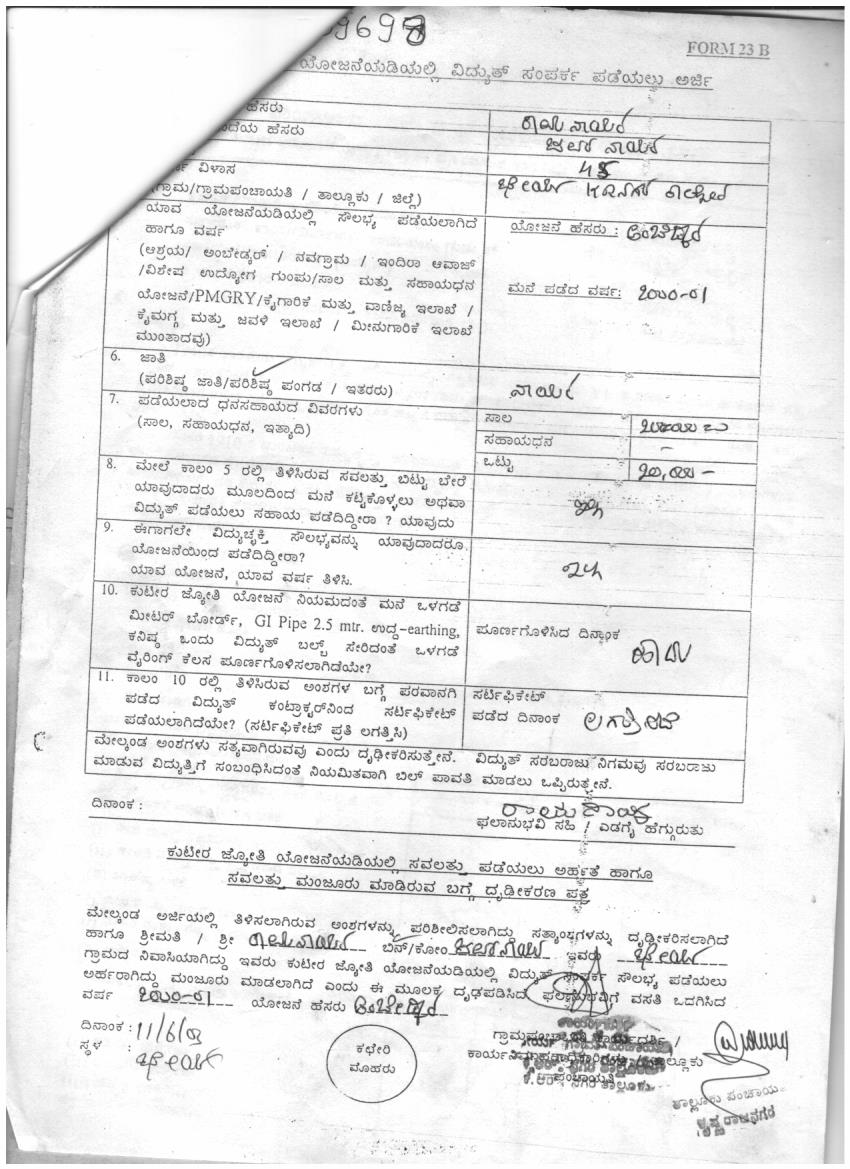 9697
FORM 23 B
ಯೋಜನೆಯಡಿಯಲ್ಲಿ ವಿದ್ಯುತ್ ಸಂಪರ್ಕ ಪಡೆಯಲು ಅರ್ಜಿ
ಹೆಸರು ರಾಮನಾಯಕ
ಹೆಸರು
45
ವಿಳಾಸ
(ಗ್ರಾಮ/ಗ್ರಾಮಪಂಚಾಯತಿ / ತಾಲ್ಲೂಕು / ಜಿಲ್ಲೆ)
ಯಾವ ಯೋಜನೆಯಡಿಯಲ್ಲಿ ಸೌಲಭ್ಯ ಪಡೆಯಲಾಗಿದೆ ಯೋಜನೆ ಹೆಸರು : ಅಂಬೇಡ್ಕರ
ಹಾಗೂ ವರ್ಷ
(ಆಶ್ರಯ/ ಅಂಬೇಡ್ಕರ್ / ನವಗ್ರಾಮ / ಇಂದಿರಾ ಆವಾಜ್
/ವಿಶೇಷ ಉದ್ಯೋಗ ಗುಂಪು/ಸಾಲ ಮತ್ತು ಸಹಾಯಧನ ಮನೆ ಪಡೆದ ವರ್ಷ: 2000-01
ಯೋಜನೆ/PMGRY/ಕೈಗಾರಿಕೆ ಮತ್ತು ವಾಣಿಜ್ಯ ಇಲಾಖೆ /
ಕೈಮಗ್ಗ ಮತ್ತು ಜವಳಿ ಇಲಾಖೆ / ಮೀನುಗಾರಿಕೆ ಇಲಾಖೆ
ಮುಂತಾದವು)
6. ಜಾತಿ
(ಪರಿಶಿಷ್ಠ ಜಾತಿ/ಪರಿಶಿಷ್ಠ ಪಂಗಡ / ಇತರರು) ನಾಯಕ
7. ಪಡೆಯಲಾದ ಧನಸಹಾಯದ ವಿವರಗಳು ಸಾಲ
(ಸಾಲ, ಸಹಾಯಧನ, ಇತ್ಯಾದಿ) ಸಹಾಯಧನ –
ಒಟ್ಟು 20,000 –
8. ಮೇಲೆ ಕಾಲಂ 5 ರಲ್ಲಿ ತಿಳಿಸಿರುವ ಸವಲತ್ತು ಬಿಟ್ಟು ಬೇರೆ
ಯಾವುದಾದರು ಮೂಲದಿಂದ ಮನೆ ಕಟ್ಟಿಕೊಳ್ಳಲು ಅಥವಾ
ವಿದ್ಯುತ್ ಪಡೆಯಲು ಸಹಾಯ ಪಡೆದಿದ್ದೀರಾ ? ಯಾವುದು
9. ಈಗಾಗಲೇ ವಿದ್ಯುಚ್ಛಕ್ತಿ ಸೌಲಭ್ಯವನ್ನು ಯಾವುದಾದರೂ
ಯೋಜನೆಯಿಂದ ಪಡೆದಿದ್ದೀರಾ?
ಯಾವ ಯೋಜನೆ, ಯಾವ ವರ್ಷ ತಿಳಿಸಿ.
10. ಕುಟೀರ ಜ್ಯೋತಿ ಯೋಜನೆ ನಿಯಮದಂತೆ ಮನೆ ಒಳಗಡೆ
ಮೀಟರ್ ಬೋರ್ಡ್, GI Pipe 2.5 mtr. ಉದ್ದ-earthing, ಪೂರ್ಣಗೊಳಿಸಿದ ದಿನಾಂಕ
ಕನಿಷ್ಠ ಒಂದು ವಿದ್ಯುತ್ ಬಲ್ಬ್ ಸೇರಿದಂತೆ ಒಳಗಡೆ
ವೈರಿಂಗ್ ಕೆಲಸ ಪೂರ್ಣಗೊಳಿಸಲಾಗಿದೆಯೇ?
11. ಕಾಲಂ 10 ರಲ್ಲಿ ತಿಳಿಸಿರುವ ಅಂಶಗಳ ಬಗ್ಗೆ ಪರವಾನಗಿ ಸರ್ಟಿಫಿಕೇಟ್
ಪಡೆದ ವಿದ್ಯುತ್ ಕಂಟ್ರಾಕ್ಟರ್‌ನಿಂದ ಸರ್ಟಿಫಿಕೇಟ್ ಪಡೆದ ದಿನಾಂಕ ಲಗತ್ತಿಸಿದೆ
ಪಡೆಯಲಾಗಿದೆಯೇ? (ಸರ್ಟಿಫಿಕೇಟ್ ಪ್ರತಿ ಲಗತ್ತಿಸಿ)
ಮೇಲ್ಕಂಡ ಅಂಶಗಳು ಸತ್ಯವಾಗಿರುವವು ಎಂದು ದೃಢೀಕರಿಸುತ್ತೇನೆ. ವಿದ್ಯುತ್ ಸರಬರಾಜು ನಿಗಮವು ಸರಬರಾಜು
ಮಾಡುವ ವಿದ್ಯುತ್ತಿಗೆ ಸಂಬಂಧಿಸಿದಂತೆ ನಿಯಮಿತವಾಗಿ ಬಿಲ್ ಪಾವತಿ ಮಾಡಲು ಒಪ್ಪಿರುತ್ತೇನೆ.
ರಾಮನಾಯಕ
ದಿನಾಂಕ : ಫಲಾನುಭವಿ ಸಹಿ / ಎಡಗೈ ಹೆಗ್ಗುರುತು
ಕುಟೀರ ಜ್ಯೋತಿ ಯೋಜನೆಯಡಿಯಲ್ಲಿ ಸವಲತ್ತು ಪಡೆಯಲು ಅರ್ಹತೆ ಹಾಗೂ
ಸವಲತ್ತು ಮಂಜೂರು ಮಾಡಿರುವ ಬಗ್ಗೆ ದೃಢೀಕರಣ ಪತ್ರ
ಮೇಲ್ಕಂಡ ಅರ್ಜಿಯಲ್ಲಿ ತಿಳಿಸಲಾಗಿರುವ ಅಂಶಗಳನ್ನು ಪರಿಶೀಲಿಸಲಾಗಿದ್ದು ಸತ್ಯಾಂಶಗಳನ್ನು ದೃಢೀಕರಿಸಲಾಗಿದೆ
ಹಾಗೂ ಶ್ರೀಮತಿ / ಶ್ರೀ ರಾಮನಾಯಕ ಬಿನ್/ಕೋಂ ಇವರು
ಗ್ರಾಮದ ನಿವಾಸಿಯಾಗಿದ್ದು ಇವರು ಕುಟೀರ ಜ್ಯೋತಿ ಯೋಜನೆಯಡಿಯಲ್ಲಿ ವಿದ್ಯುತ್ ಸಂಪರ್ಕ ಸೌಲಭ್ಯ ಪಡೆಯಲು
ಅರ್ಹರಾಗಿದ್ದು ಮಂಜೂರು ಮಾಡಲಾಗಿದೆ ಎಂದು ಈ ಮೂಲಕ ದೃಢಪಡಿಸಿದೆ. ಫಲಾನುಭವಿಗೆ ವಸತಿ ಒದಗಿಸಿದ
ವರ್ಷ 2000-01 ಯೋಜನೆ ಹೆಸರು ಅಂಬೇಡ್ಕರ
ದಿನಾಂಕ : 11/6/03
ಸ್ಥಳ :
ಕಛೇರಿ
ಮೊಹರು
ಗ್ರಾಮಪಂಚಾಯತಿ ಕಾರ್ಯದರ್ಶಿ /
ಕಾರ್ಯನಿರ್ವಹಣಾಧಿಕಾರಿಗಳು, ತಾಲ್ಲೂಕು
ಪಂಚಾಯತಿ
ಕೆ.ಆರ್. ನಗರ ತಾಲ್ಲೂಕು
ತಾಲ್ಲೂಕು ಪಂಚಾಯ
ಕೃಷ್ಣರಾಜನಗರ